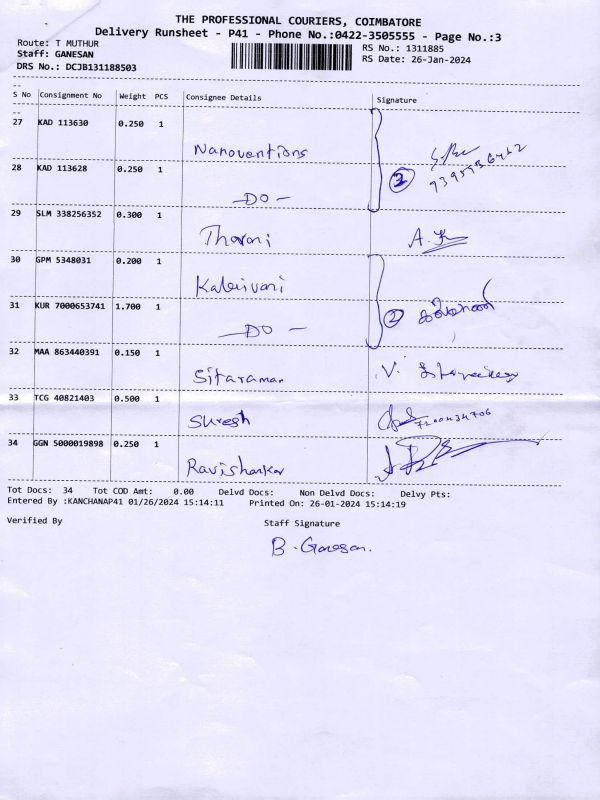 THE PROFESSIONAL COURIERS, COIMBATORE
Delivery Runsheet - P41 - Phone No.:0422-3505555 - Page No.:3
Route: T MUTHUR
RS No.: 1311885
Staff: GANESAN
RS Date: 26-Jan-2024
DRS No.: DCJB131188503
S No Consignment No Weight PCS Consignee Details Signature
27 KAD 113630 0.250 1
Nanoventions
28 KAD 113628 0.250 1
2
-DO-
29 SLM 338256352 0.300 1
Tharani
30 GPM 5348031 0.200 1
Kalaivani
31 KUR 7000653741 1.700 1
2
-DO-
32 MAA 863440391 0.150 1
Sitaraman V.
33 TCG 40821403 0.500 1
Suresh
34 GGN 5000019898 0.250 1
Ravishankar
Tot Docs: 34 Tot COD Amt: 0.00 Delvd Docs: Non Delvd Docs: Delvy Pts:
Entered By :KANCHANAP41 01/26/2024 15:14:11 Printed On: 26-01-2024 15:14:19
Verified By Staff Signature
B. Ganesan.